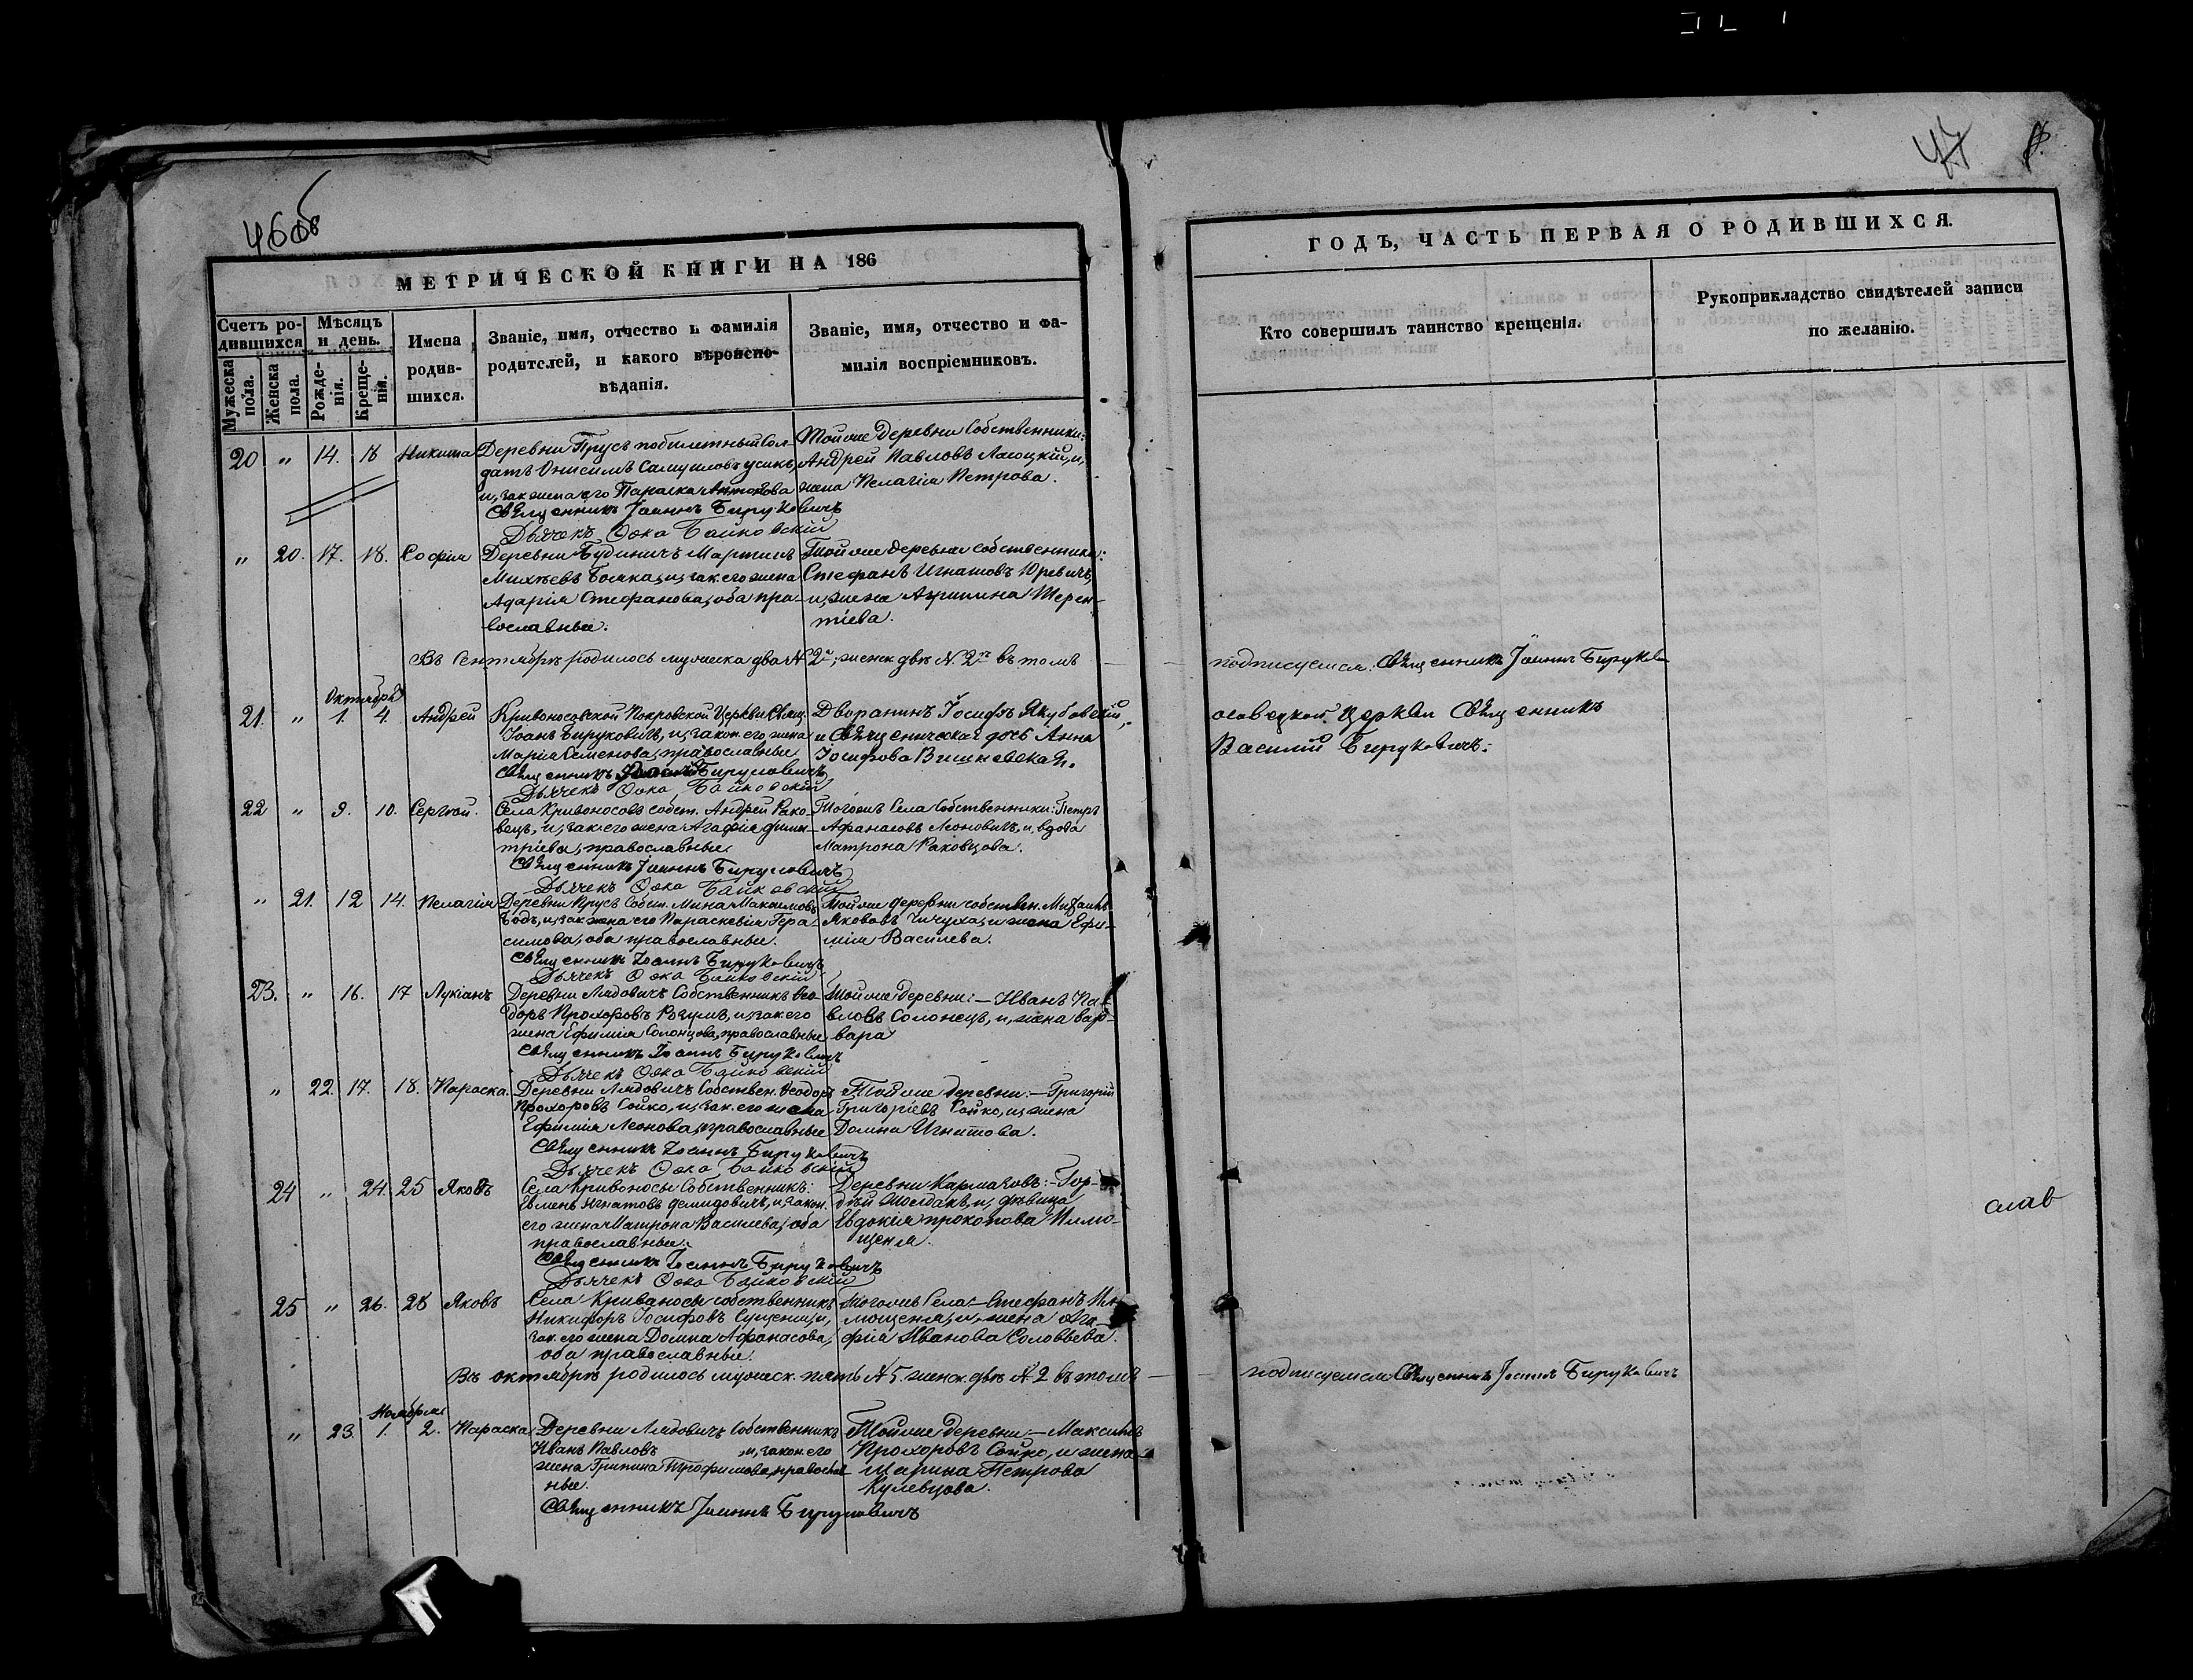 46об
47
МЕТРИЧЕСКОЙ КНИГИ НА 186
Счетъ ро-
дившихся
Мѣсяцъ
и день.
Мужеска
пола.
Женска
пола.
Рожде-
нія.
Креще-
нія.
Имена
родив-
шихся.
Званіе, имя, отчество и фамилія
родителей, и какого вѣроиспо-
вѣданія.
Званіе, имя, отчество и фа-
милія воспріемниковъ.
20 „ 14. 18 Никита
Деревни Прусъ побилетный Сол-
датъ Онисимъ Самуиловъ усикъ,
и, зак жена его Параска Антонова
Священникъ Іоаннъ Бируковичъ
Дьячекъ Ѳока Байковскій
Тойже Деревни Собственники:
Андрей Павловъ Ласоцкій, и,
жена Пелагія Петрова.
„ 20. 17. 18. Софія
Деревни Будиничъ Мартинъ
Михѣевъ Бочка, и, зак. его жена
Адарія Стефанова, оба пра-
вославные.
Тойже деревни собственники:
Стефанъ Игнатовъ Юревичъ,
и, жена Агрипина Терен-
тіева.
Въ Сентябрѣ родилось мужеска два N 2а, женск двѣ N. 2 въ томъ
21. „ Октября 1. 4. Андрей
Кривоносовской Покровской Церкви Свящ.
Іоанъ Бируковичъ, и, закон. его жена
Марія Семенова, православные
Священникъ Іоаннъ Бируковичъ
Дьячекъ Ѳока Байковскій
Дворанинъ Іосифъ Якубовскій,
и Священическая дочь Анна
Іосифова Вишневская.
22 „ 9. 10. Сергѣй.
Села Кривоносовъ собст. Андрей Рако-
вецъ, и, зак. его жена Агафія Дими-
тріева, православные.
Священникъ Іоаннъ Бируковичъ
Дьячекъ Ѳока Байковскій
Тогожъ Села Собственники: Петръ
Афанасовъ Леоновичъ, и, вдова
Матрона Раковцова.
„ 21. 12 14. Пелагія
Деревни Прусъ Собст. Мина Максимовъ
Бодъ, и, зак жена его Параскевія Гера-
симова, оба православные.
Священникъ Іоаннъ Бируковичъ
Дьячекъ Ѳока Байковскій
Тойже деревни собствен. Михаилъ
Яковавъ Чичуха, и жена Ефи-
мія Василева.
23. „ 16. 17 Лукіанъ
Деревни Лядовичъ Собственникъ Ѳео-
доръ Прохоровъ, и, зак его
жена Ефимія Солонцова, православные
Священникъ Іоаннъ Бируковичъ
Дьячекъ Ѳока Байковскій
Тойже Деревни: — Иванъ Па-
вловъ Солонецъ, и, жена вар-
вара
„ 22. 17. 18. Параска.
Деревни Лядовичъ Собствен. Ѳеодоръ
Прохоровъ Сойко, и, зак. его жена
Ефимія Леонова, православные
Священникъ Іоаннъ Бируковичъ
Дьячекъ Ѳока Байковскій
Тойже Деревни: — Григорій
Григоріевъ Сойко, и, жена
Домна Игнатова.
24 „ 24. 25 Яковъ
Села Кривоносы Собственникъ:
Игнатовъ демидовичъ, и, закон.
его жена Матрона Василева, оба
православные.
Священникъ Іоаннъ Бируковичъ
Дьячекъ Ѳока Байковскій
Деревни Кармазовъ: — Гор-
дѣй Шолдакъ, и, дѣвица
Евдокія прокопова Илю-
щеня.
25 „ 26. 28 Яковъ
Села Кривоносы собственникъ
Никифоръ Іосифовъ Сущеня, и,
зак. его жена Домна Афанасова,
оба православные.
Тогожъ Села: — Стефанъ Ил-
ющеня, и, жена Ага-
фія Иванова Соловьева.
Въ октябрѣ родилось мужеск. пять N 5. женск. двѣ N 2 въ томъ
„ 23. Ноября 1. 2. Параска
Деревни Лядовичъ Собственникъ
Иванъ Павловъ , и, закон. его
жена Грипина Трофимова, православ-
ные.
Священникъ Іоаннъ Бируковичъ
Тойже Деревни: — Максимъ
Прохоровъ Сойко, и жена
Марина Петрова
Кулевцова.
ГОДЪ, ЧАСТЬ ПЕРВАЯ О РОДИВШИХСЯ.
Кто совершилъ таинство крещенія.
Рукоприкладство свидѣтелей записи
по желанію.
подписуемся: Священникъ Іоаннъ Бируков
церкви Священникъ
Василій Бируковичъ.
слав
подписуемся Священникъ Іоаннъ Бируковичъ